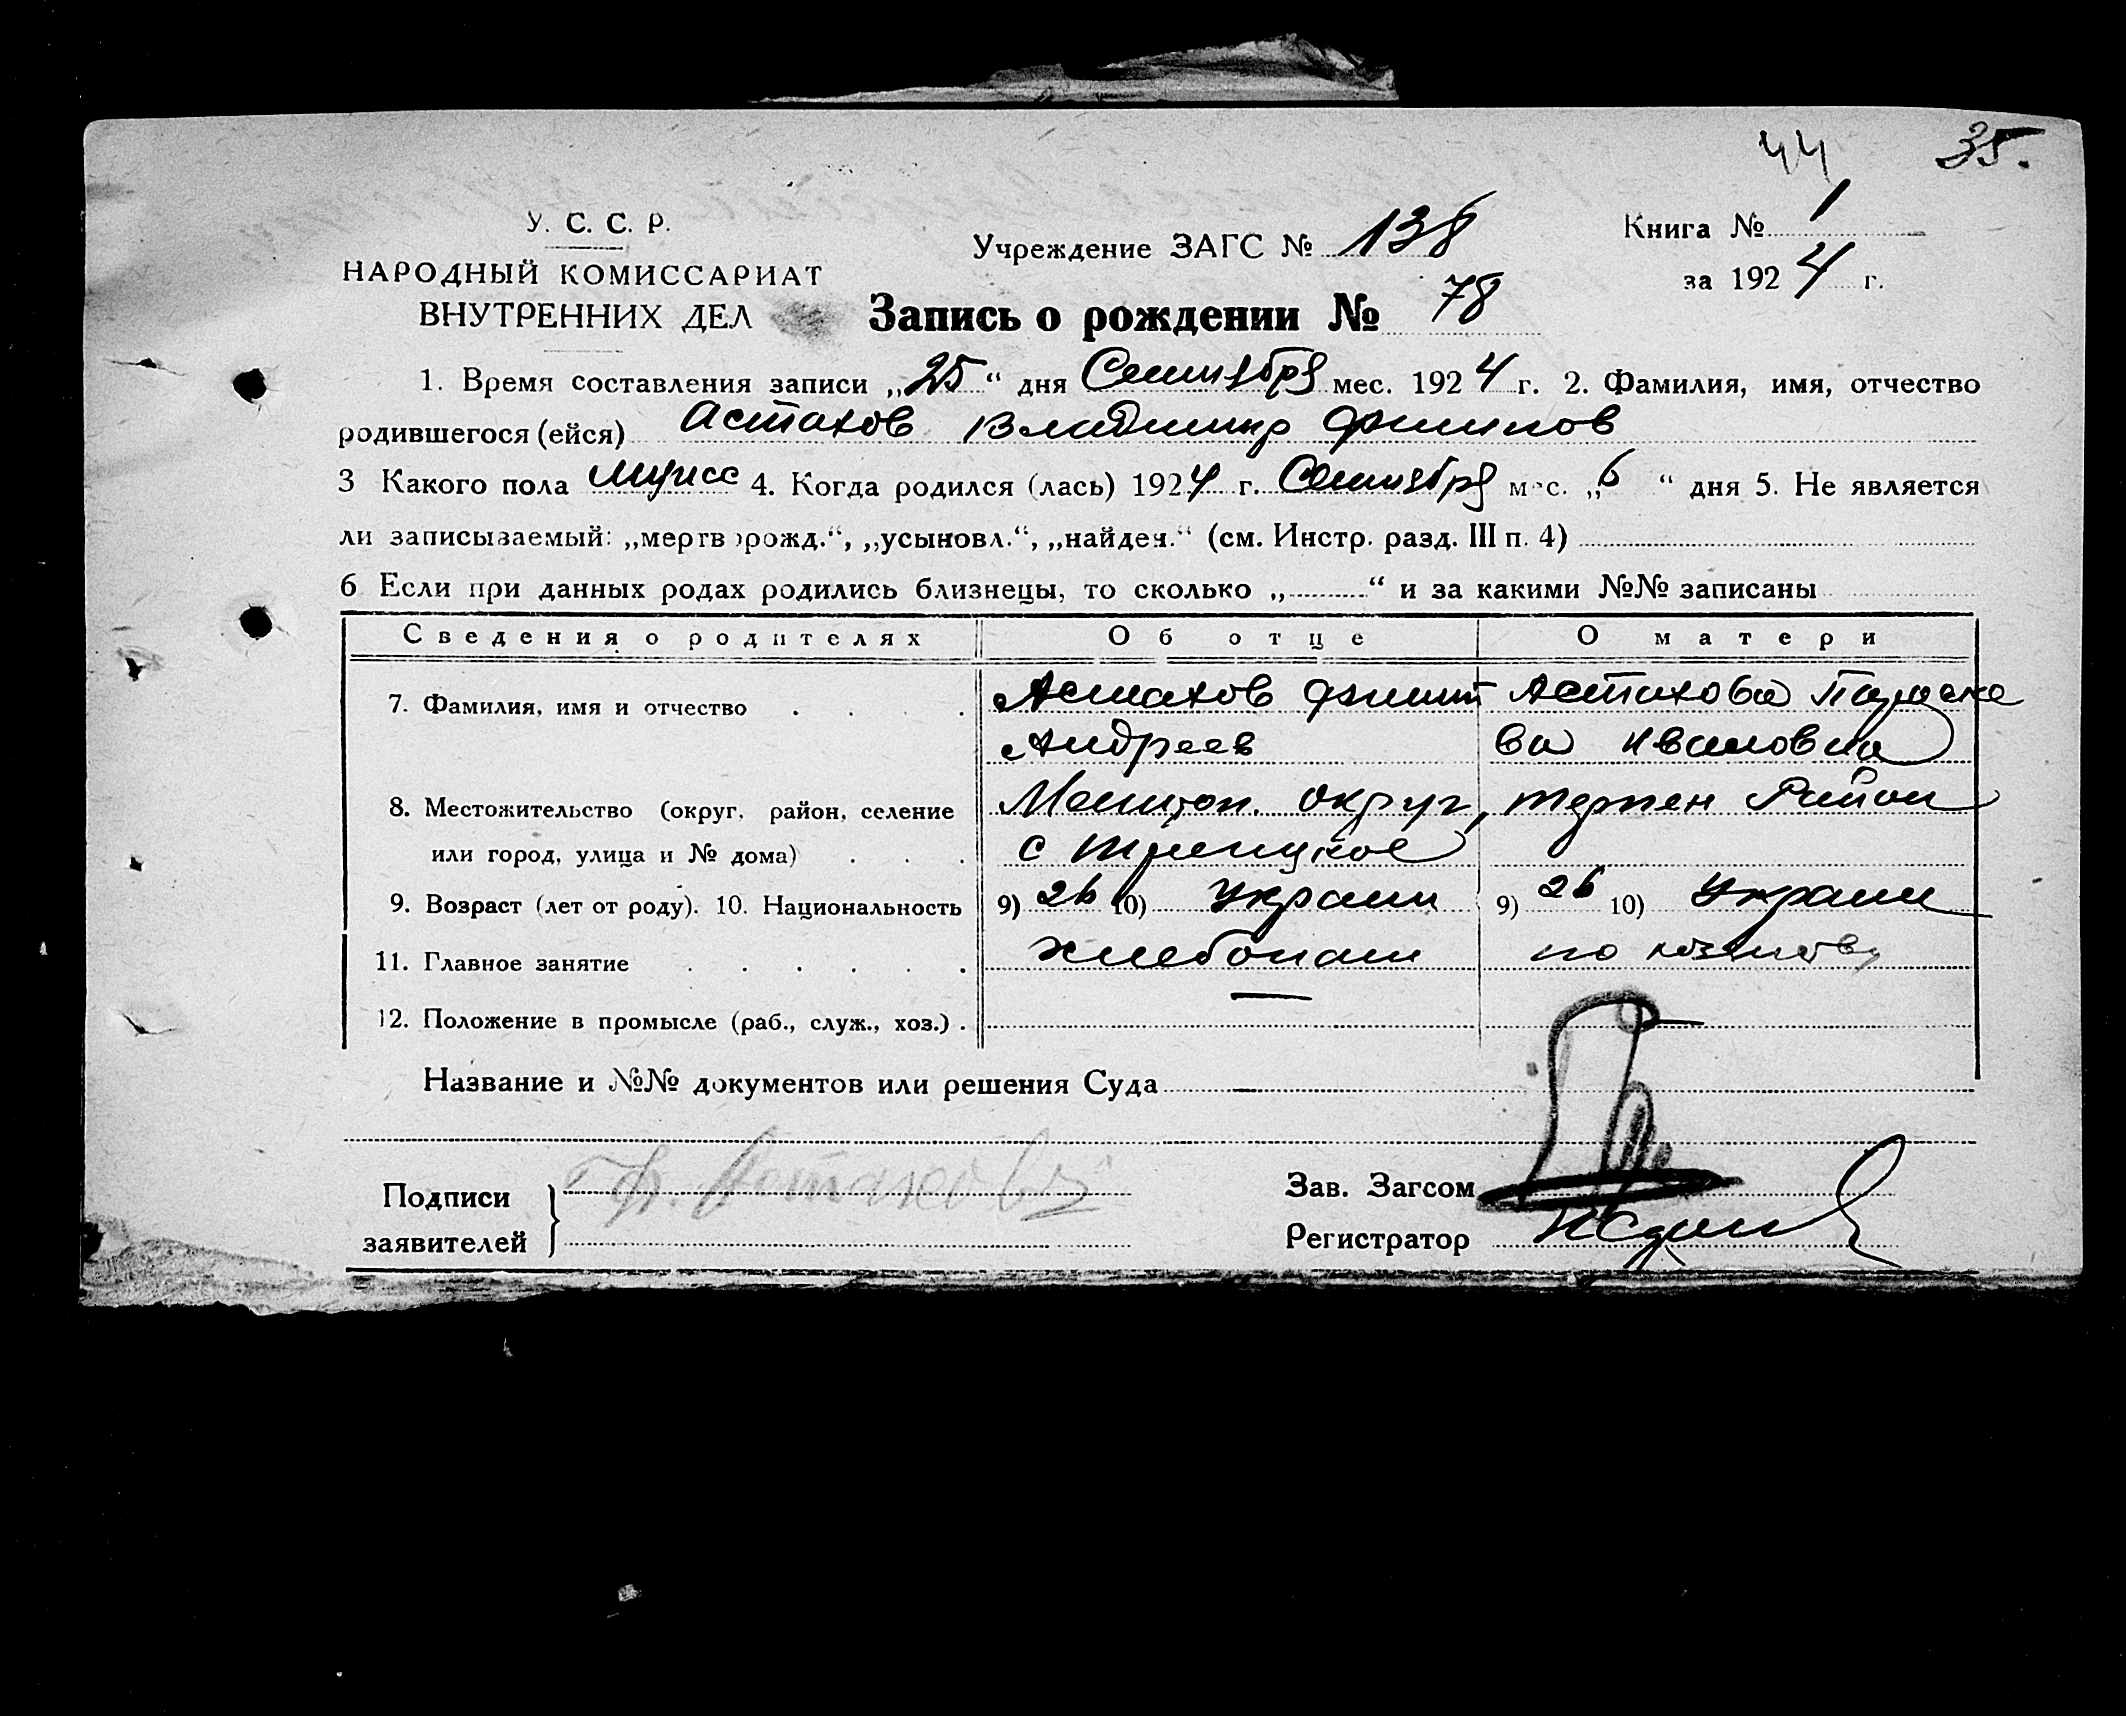 44 35.
У. С. С. Р.
НАРОДНЫЙ КОМИССАРИАТ
ВНУТРЕННИХ ДЕЛ
Учреждение ЗАГС № 138
Книга № 1
за 1924 г.
Запись о рождении № 78
1. Время составления записи „25“ дня Сентября мес. 1924 г. 2. Фамилия, имя, отчество
родившегося (ейся) Астахов Владимир Филипов
3 Какого пола мужс 4. Когда родился (лась) 1924 г. Сентября мес. „6“ дня 5. Не является
ли записываемый: „мертворожд.“, „усыновл.“, „найден.“ (см. Инстр. разд. III п. 4)
6 Если при данных родах родились близнецы, то сколько „ “ и за какими №№ записаны
Сведения о родителях Об отце О матери
7. Фамилия, имя и отчество . . . . Астахов Филип Астахова Параске
Андреев ва Ивановна
8. Местожительство (округ, район, селение Мелитоп. округ, терпен Район
или город, улица и № дома) . . . с троицкое
9. Возраст (лет от роду). 10. Национальность 9) 26 10) Украин 9) 26 10) Украин
11. Главное занятие . . . . . . хлебопаш по хозяйству
12. Положение в промысле (раб., служ., хоз.) . —
Название и №№ документов или решения Суда —
Подписи
заявителей
Ф. Астахов
Зав. Загсом
Регистратор